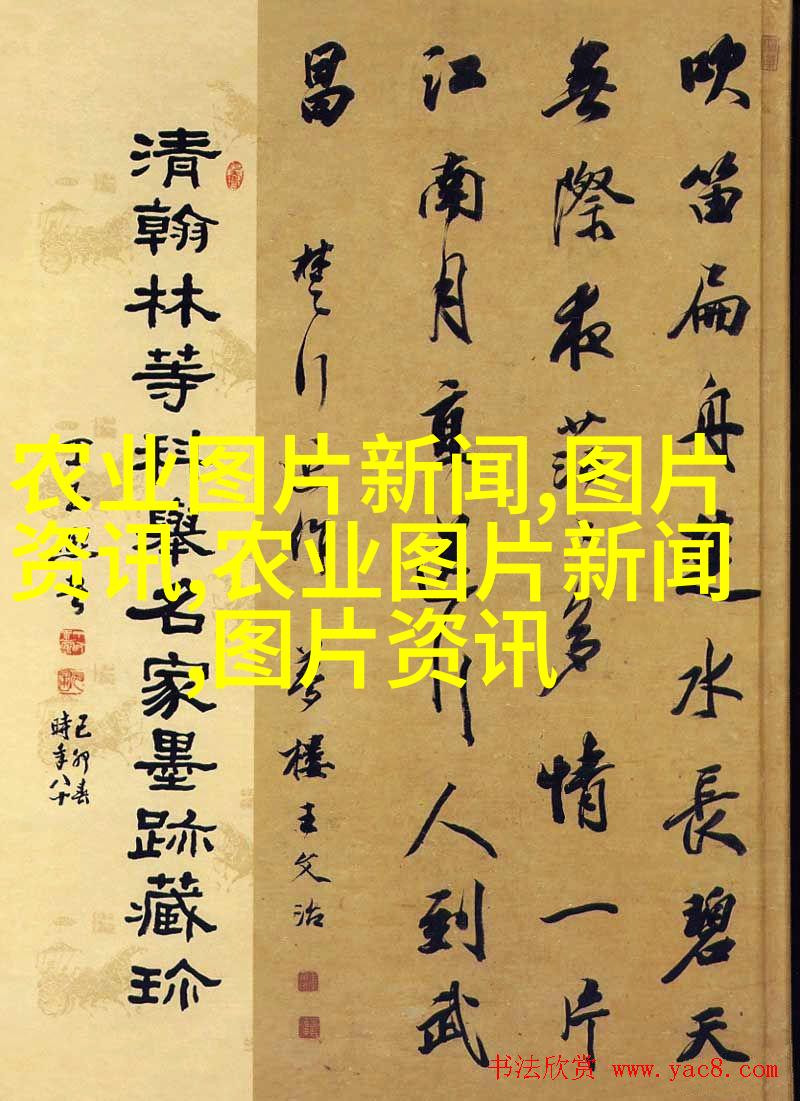 吹笛扁舟水長碧天
無際夜茫多情一片
江南月直行人到武
昌
楚行近作 夢樓王文治
清翰林等科舉名家墨跡藏珍
己卯春
時年八十
农业图片新闻,图片
资讯,农业图片新闻
,图片资讯
书法欣赏 www.yac8.com